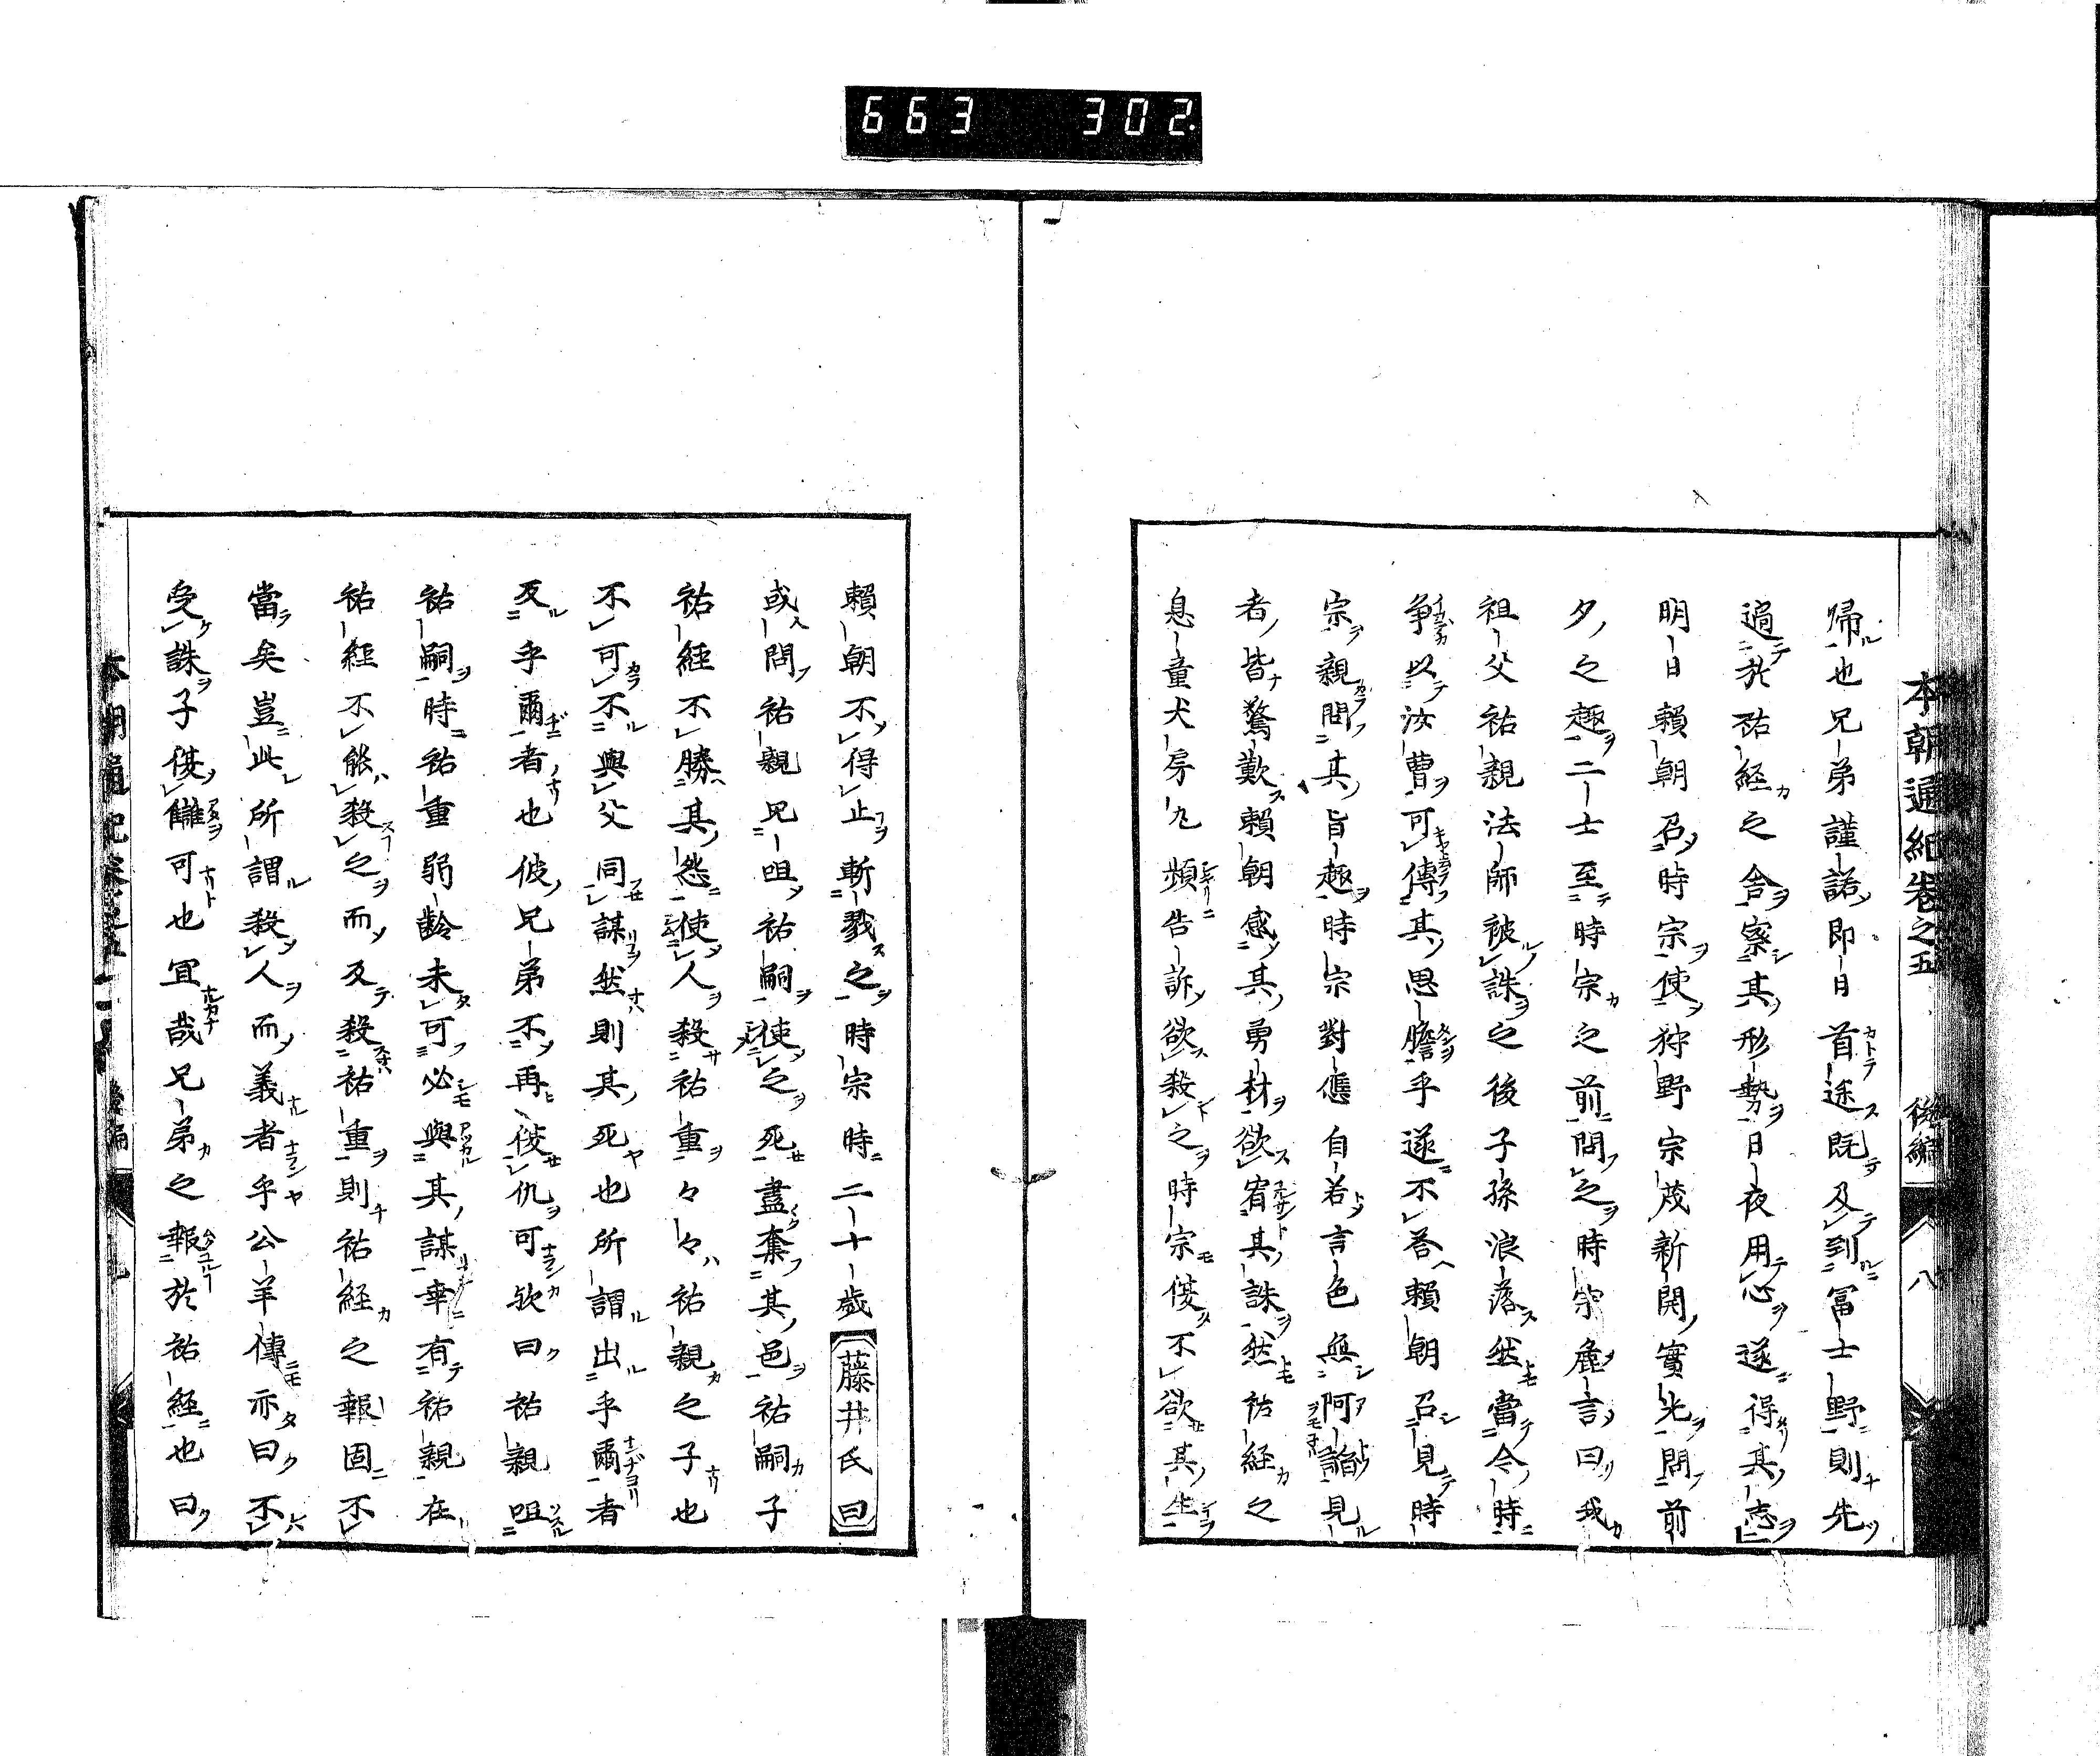 663 302
本朝通紀卷之五 後編 八
歸也兄弟謹諾即日首途既及到冨士野則先
過於祐經之舎察其形勢日夜用心遂得其志
明日賴朝召時宗使狩野宗茂新開實光問前
夕之趣二士至時宗之前問之時宗麁言曰我
祖父祐親法師被誅之後子孫浪落然當今時
爭以汝曹可傳其思膽乎遂不答賴朝召見時
宗親問其旨趣時宗對應自若言色無阿諂見
者皆驚歎賴朝感其勇材欲宥其誅然祐經之
息童犬房丸頻告訴欲殺之時宗復不欲其生
賴朝不得止斬戮之時宗時二十歲藤井氏曰
或問祐親兄咀祐嗣使之死盡奪其邑祐嗣子
祐經不勝其怨使人殺祐重々々祐親之子也
不可不與父同謀然則其死也所謂出乎爾者
反乎爾者也彼兄弟不再復仇可欤曰祐親咀
祐嗣時祐重弱齡未可必與其謀幸有祐親在
祐經不能殺之而及殺祐重則祐經之報固不
當矣豈此所謂殺人而義者乎公羊傳亦曰不
受誅子復讎可也冝哉兄弟之報於祐經也曰